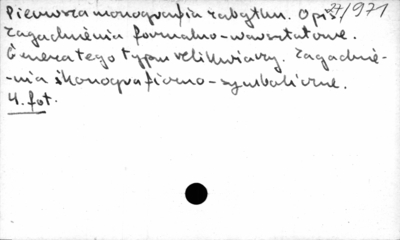 Pierwsza monografia zabytku. Opis 27/971
zagadnienia formalno-warsztatowe.
Geneza tego typu relikwiarzy. Zagadnie-
-nia ikonograficzno-symboliczne.
4. fot.